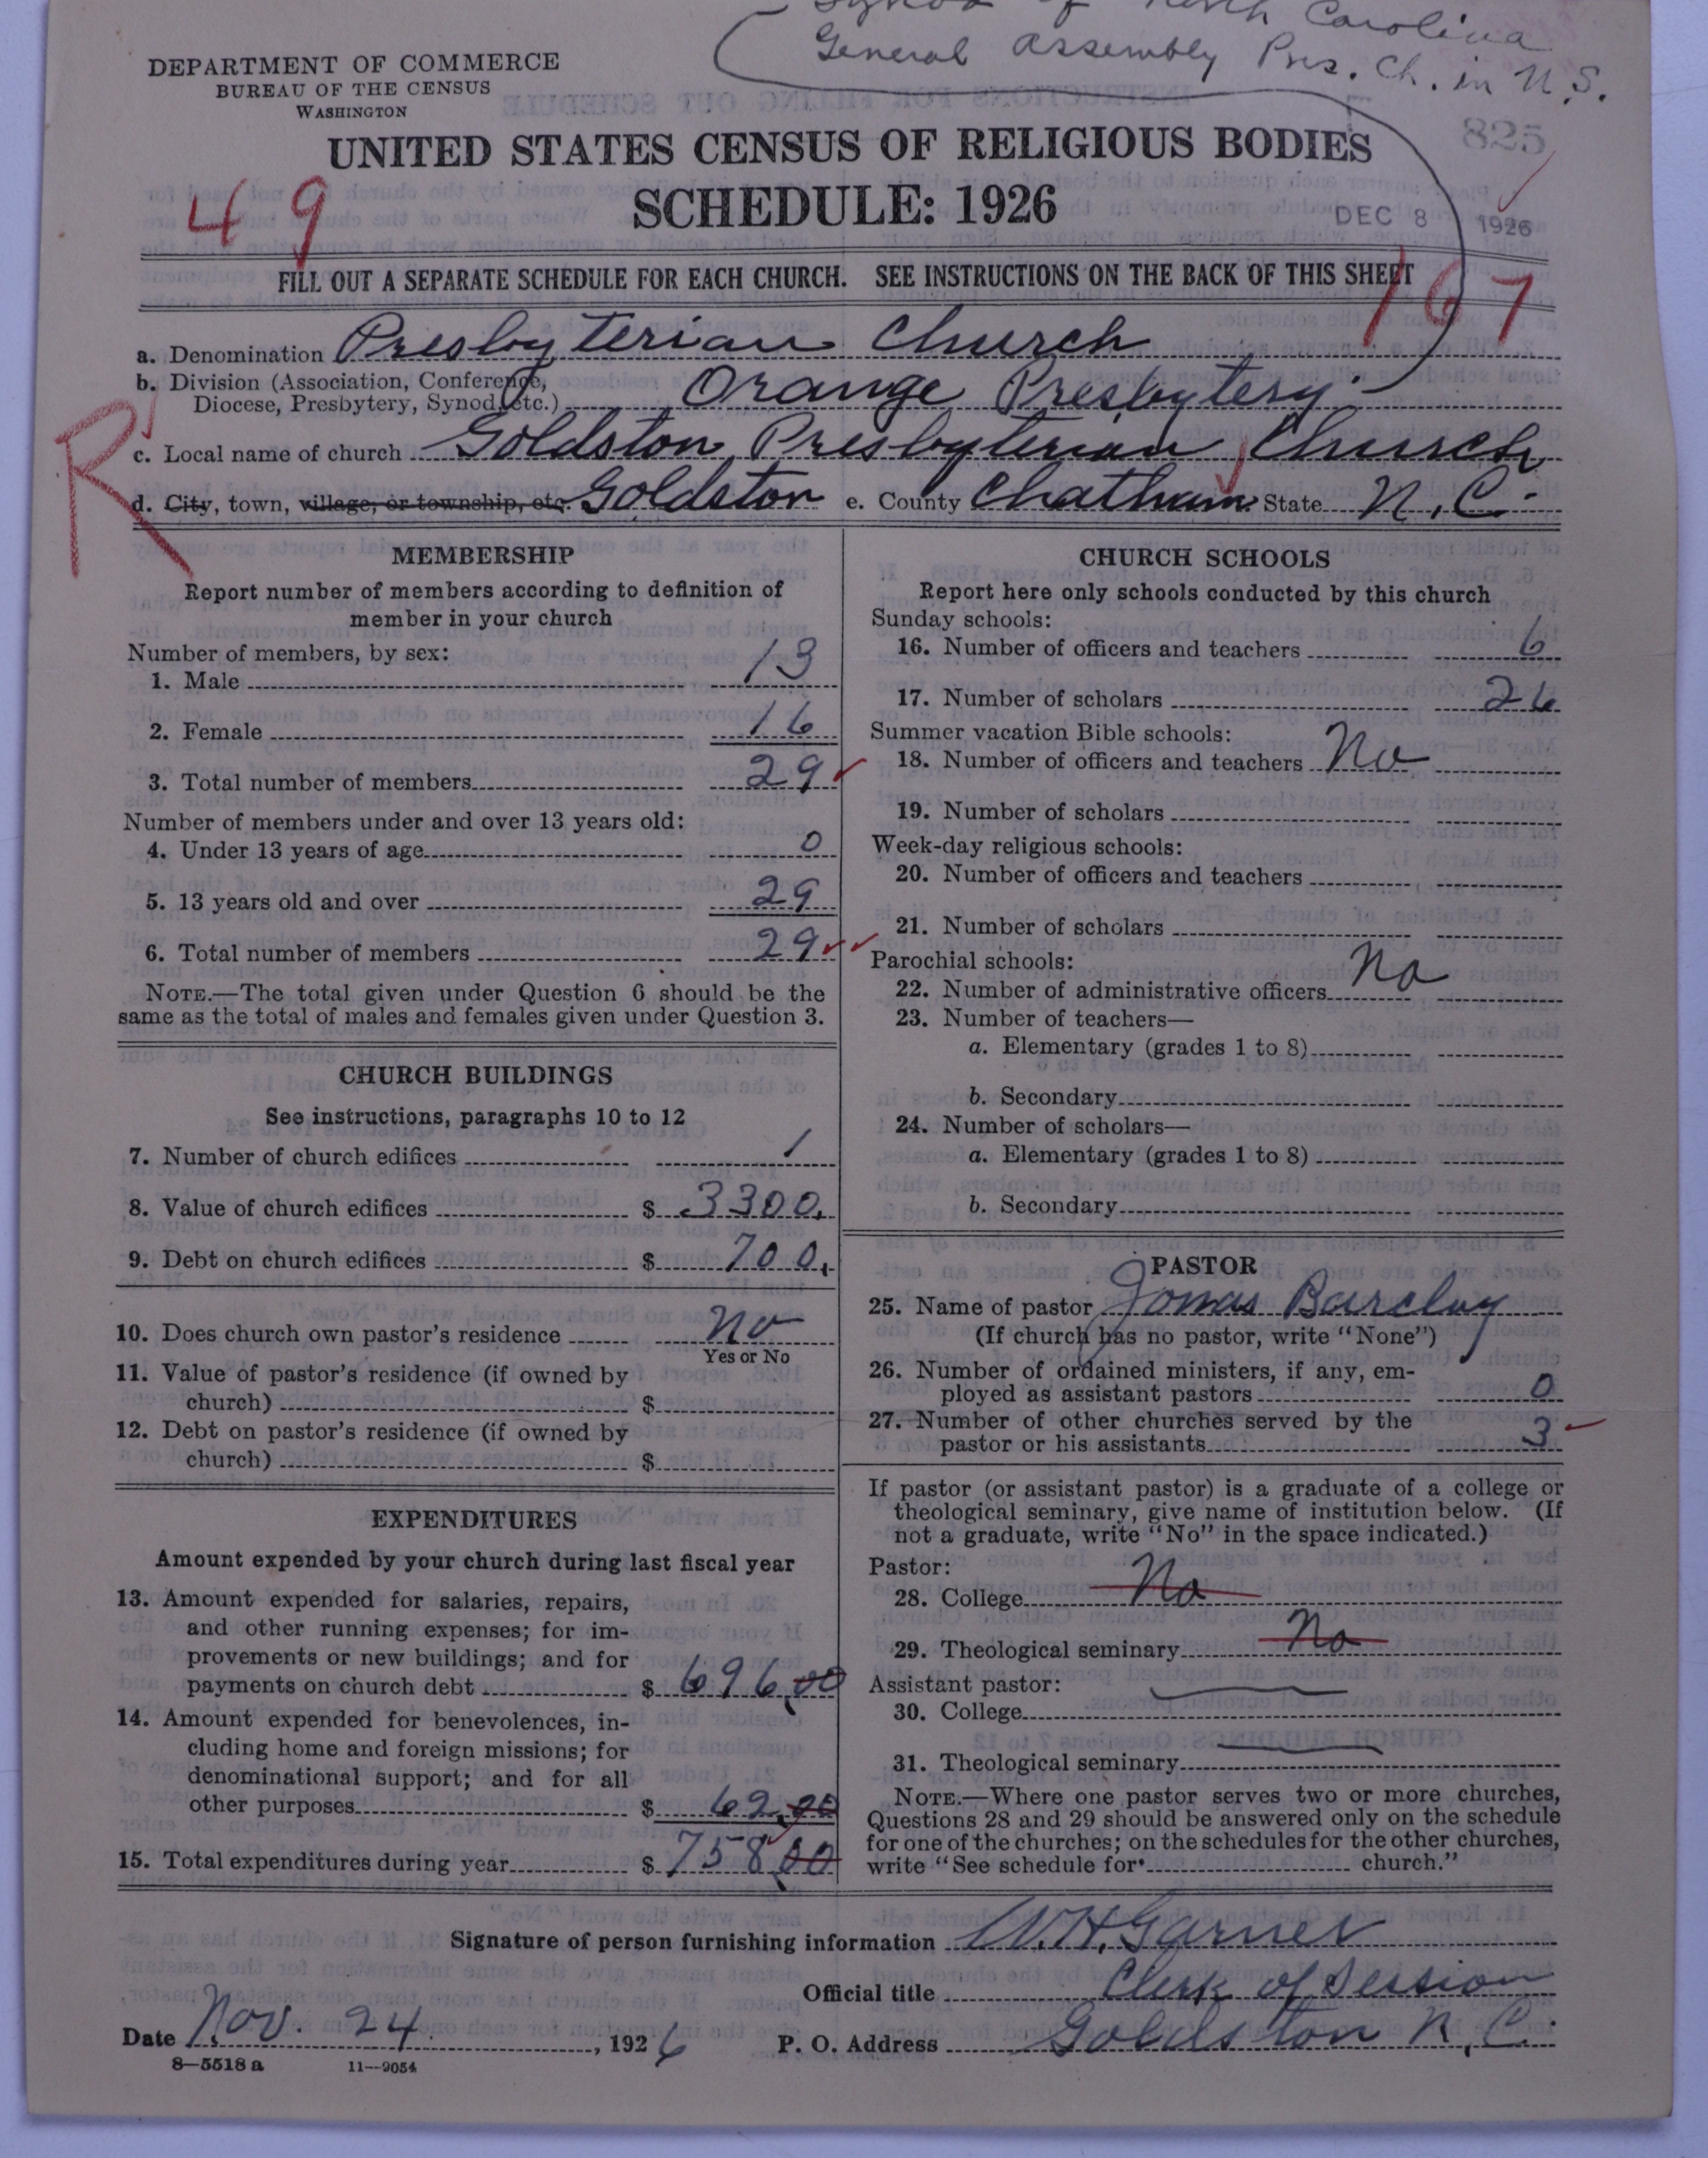 Synod of North Carolina
General Assembly Pres. Ch. in U.S.
DEPARTMENT OF COMMERCE
BUREAU OF THE CENSUS
WASHINGTON
825
UNITED STATES CENSUS OF RELIGIOUS BODIES
SCHEDULE: 1926
49
DEC 8 1926
FILL OUT A SEPARATE SCHEDULE FOR EACH CHURCH. SEE INSTRUCTIONS ON THE BACK OF THIS SHEET
167
a. Denomination Presbyterian Church
b. Division (Association, Conference, Diocese, Presbytery, Synod, etc.) Orange Presbytery
R
c. Local name of church Goldston Presbyterian Church
d. City, town, village, or township, etc. Goldston e. County Chatham State N.C.
MEMBERSHIP
Report number of members according to definition of
member in your church
Number of members, by sex:
1. Male 13
2. Female 16
3. Total number of members 29
Number of members under and over 13 years old:
4. Under 13 years of age 0
5. 13 years old and over 29
6. Total number of members 29
NOTE.—The total given under Question 6 should be the
same as the total of males and females given under Question 3.
CHURCH BUILDINGS
See instructions, paragraphs 10 to 12
7. Number of church edifices 1
8. Value of church edifices $ 3300.
9. Debt on church edifices $ 700.
10. Does church own pastor's residence No
Yes or No
11. Value of pastor's residence (if owned by
church) $
12. Debt on pastor's residence (if owned by
church) $
EXPENDITURES
Amount expended by your church during last fiscal year
13. Amount expended for salaries, repairs,
and other running expenses; for im-
provements or new buildings; and for
payments on church debt $ 696.00
14. Amount expended for benevolences, in-
cluding home and foreign missions; for
denominational support; and for all
other purposes $ 62.00
15. Total expenditures during year $ 758.00
CHURCH SCHOOLS
Report here only schools conducted by this church
Sunday schools:
16. Number of officers and teachers 6
17. Number of scholars 26
Summer vacation Bible schools:
18. Number of officers and teachers No
19. Number of scholars
Week-day religious schools:
20. Number of officers and teachers
21. Number of scholars
Parochial schools:
22. Number of administrative officers No
23. Number of teachers—
a. Elementary (grades 1 to 8)
b. Secondary
24. Number of scholars—
a. Elementary (grades 1 to 8)
b. Secondary
PASTOR
25. Name of pastor Jonas Barclay
(If church has no pastor, write "None")
26. Number of ordained ministers, if any, em-
ployed as assistant pastors 0
27. Number of other churches served by the
pastor or his assistants 3
If pastor (or assistant pastor) is a graduate of a college or
theological seminary, give name of institution below. (If
not a graduate, write "No" in the space indicated.)
Pastor:
28. College No
29. Theological seminary No
Assistant pastor:
30. College
31. Theological seminary
NOTE.—Where one pastor serves two or more churches,
Questions 28 and 29 should be answered only on the schedule
for one of the churches; on the schedules for the other churches,
write "See schedule for church."
Signature of person furnishing information W.H. Garner
Official title Clerk of Session
Date Nov. 24, 1926 P. O. Address Goldston N.C.
8—5518 a 11—9054